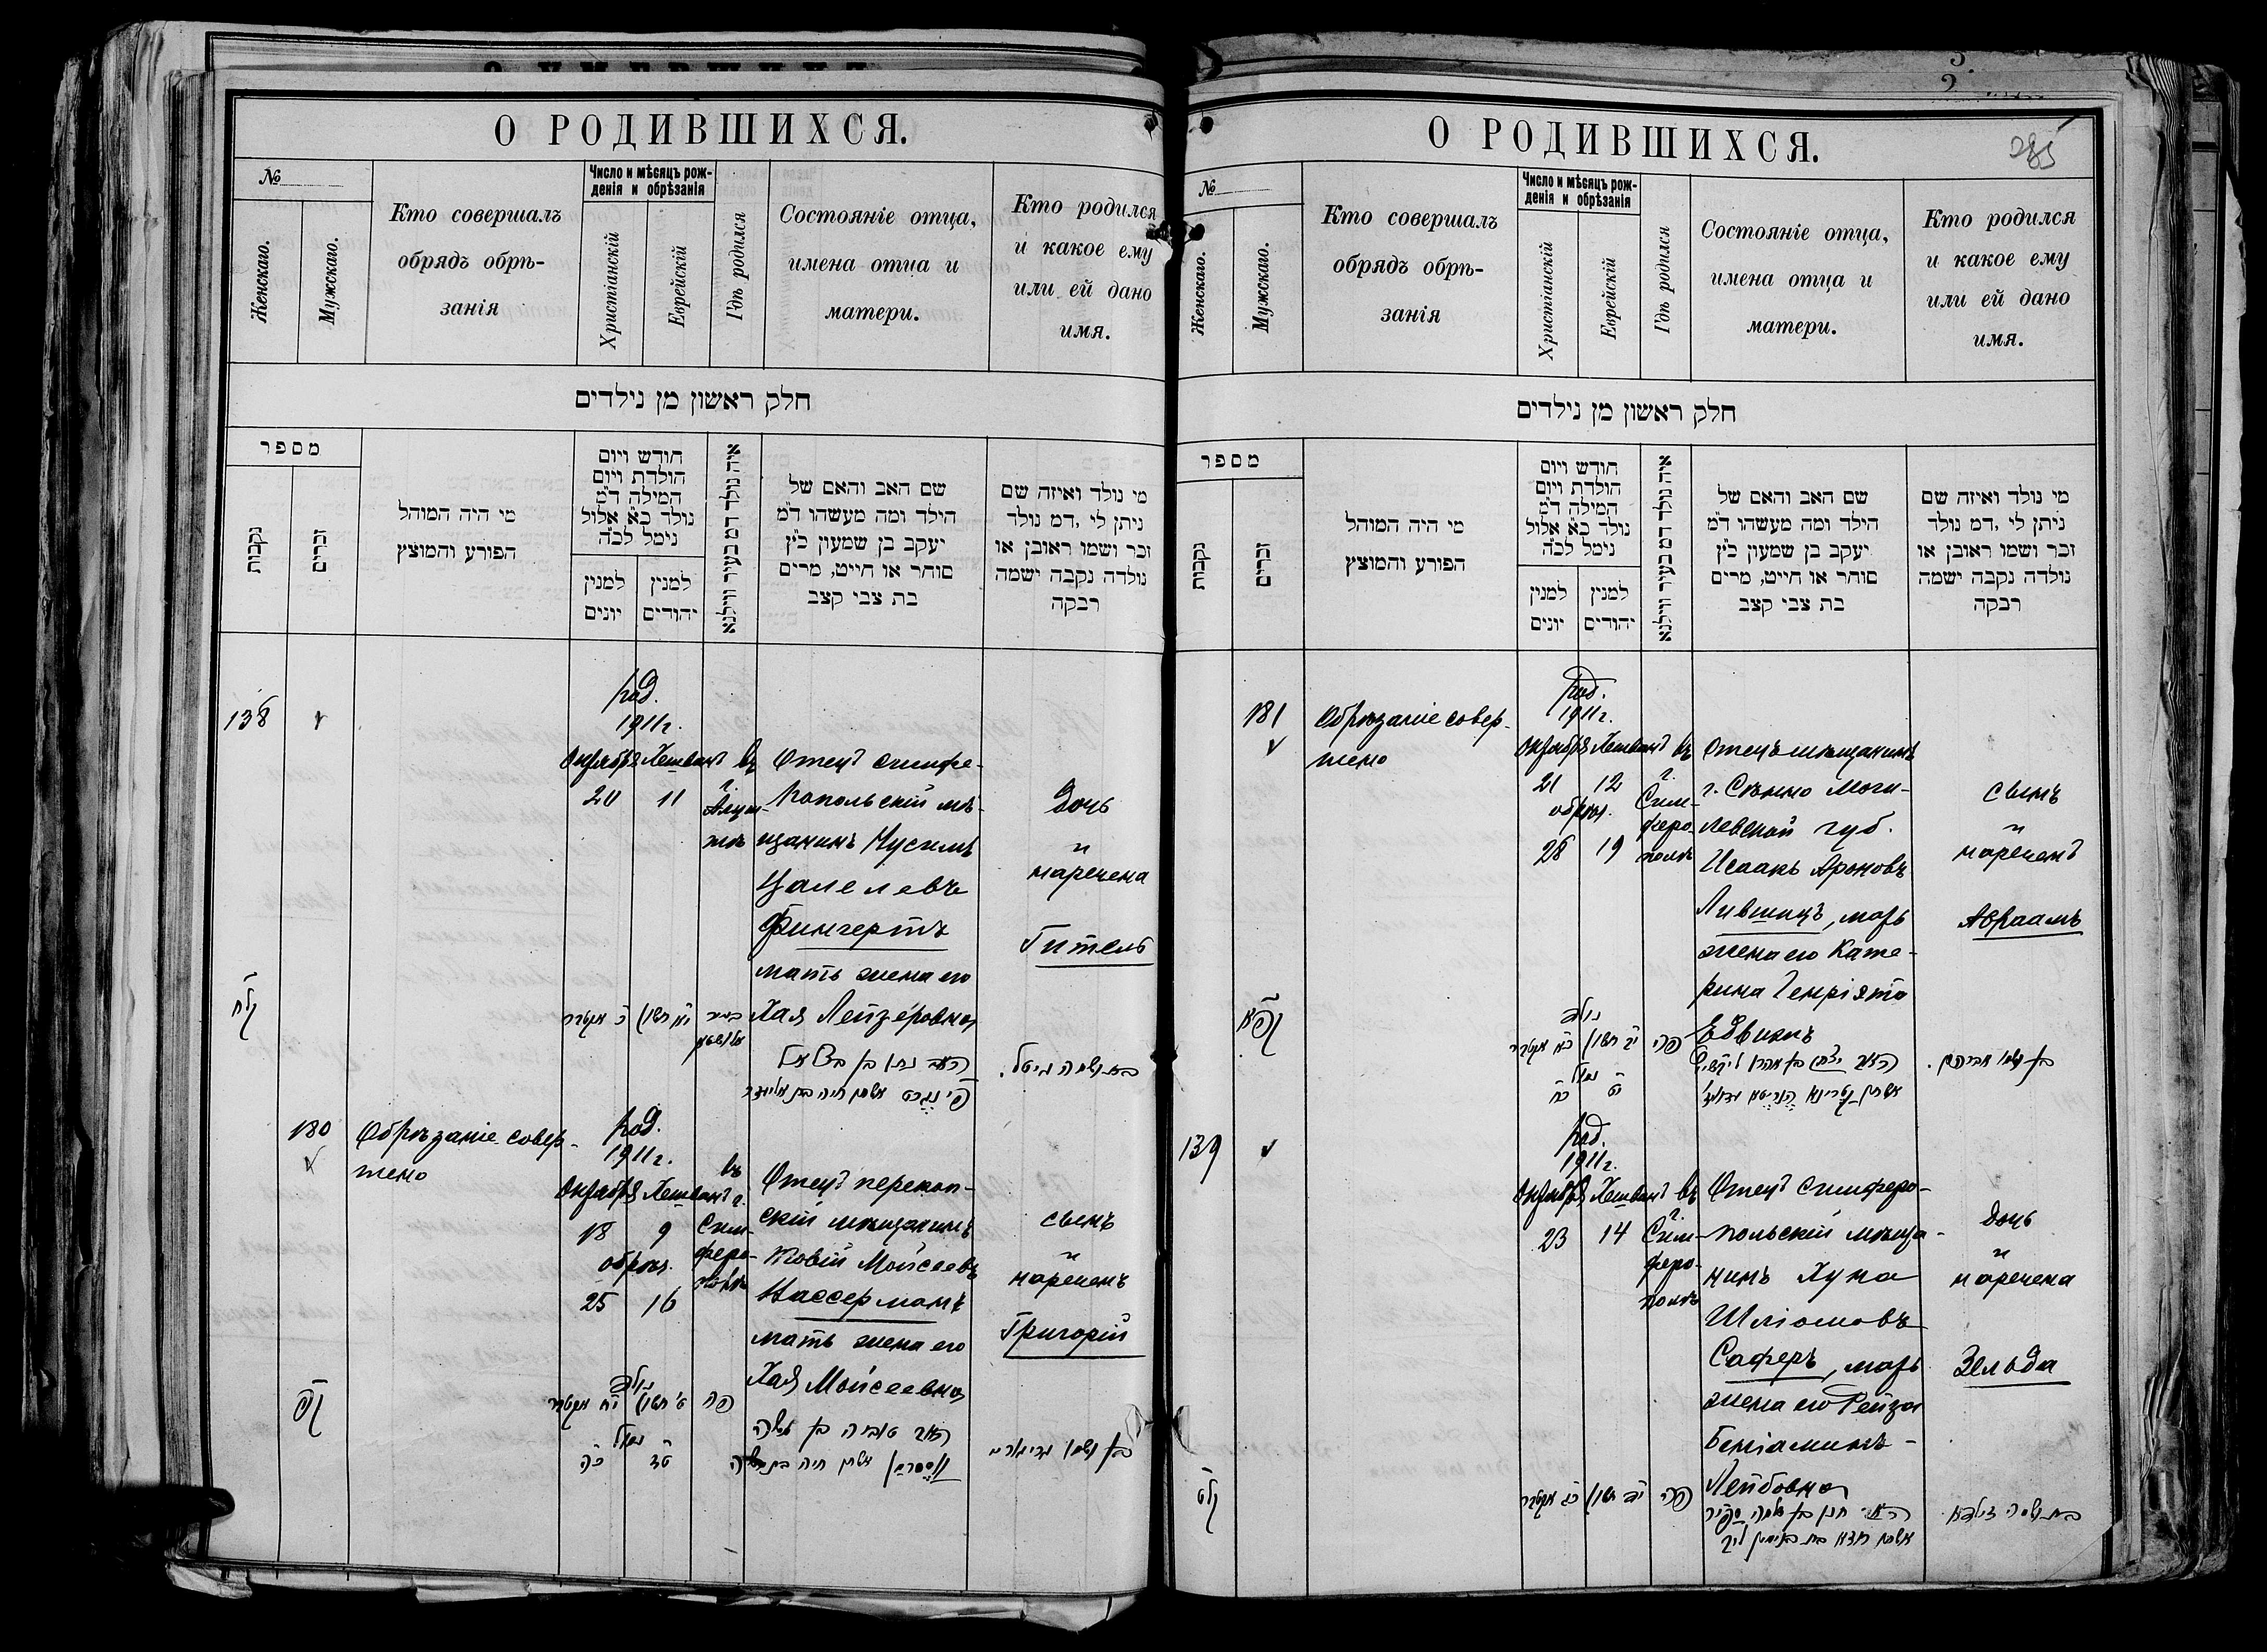 О РОДИВШИХСЯ.
№
Женскаго.
Мужскаго.
Кто совершалъ
обрядъ обрѣ-
занія
Число и мѣсяцъ рож-
денія и обрѣзанія
Христіанскій
Еврейскій
Гдѣ родился
Состояніе отца,
имена отца и
матери.
Кто родился
и какое ему
или ей дано
имя.
חלק ראשון מן נילדים
מספר
נקבות
זכרים
מי היה המוהל
הפורע והמוצץ
חודש ויום
הולדת ויום
המילה ד״מ
נולד כ״א אלול
נימל לכ״ה
למנין
יונים
למנין
יהודים
איה נולד דמ בעיר ווילנא
שם האב והאם של
הילד ומה מעשהו ד״מ
יעקב בן שמעון כ״ץ
סוחר או חייט, מרים
בת צבי קצב
מי נולד ואיזה שם
ניתן לי ,דמ נולד
זכר ושמו ראובן או
נולדה נקבה ישמה
רבקה
138
род.
1911 г.
Октября Хешванъ
20 11
въ
г.
Алуш-
тѣ
Отецъ симфе-
ропольскій мѣ-
щанинъ Нусимъ
Цалелевъ
Фингертъ
мать жена его
Хая Лейзеровна
Дочь
и
наречена
Гитель
קלח
כ אקטבר
יא חשון
האב נתן בן בצלאל
פינגרט אשתו חיה בת אליעזר
בת ושמה גיטל.
180
Обрѣзаніе совер-
шено
род.
1911 г.
Октября Хешванъ
18 9
обрѣз.
25 16
въ
г.
Сим-
феро-
полѣ
Отецъ перекоп-
скій мѣщанинъ
Товій Мойсеевъ
Вассерманъ
мать жена его
Хая Мойсеевна
сынъ
и
нареченъ
Григорій
קפ
נולד
יח אקטבר
ט חשון
פה
נמול
כה
טז
האב טוביה בן משה
וסרמן אשתו חיה בת משה
О РОДИВШИХСЯ.
285
№
Женскаго.
Мужскаго.
Кто совершалъ
обрядъ обрѣ-
занія
Число и мѣсяцъ рож-
денія и обрѣзанія
Христіанскій
Еврейскій
Гдѣ родился
Состояніе отца,
имена отца и
матери.
Кто родился
и какое ему
или ей дано
имя.
חלק ראשון מן נילדים
מספר
נקבות
זכרים
מי היה המוהל
הפורע והמוצץ
חודש ויום
הולדת ויום
המילה ד״מ
נולד כ״א אלול
נימל לכ״ה
למנין
יונים
למנין
יהודים
איה נולד דמ בעיר ווילנא
שם האב והאם של
הילד ומה מעשהו ד״מ
יעקב בן שמעון כ״ץ
סוחר או חייט, מרים
בת צבי קצב
מי נולד ואיזה שם
ניתן לי ,דמ נולד
זכר ושמו ראובן או
נולדה נקבה ישמה
רבקה
181
Обрѣзаніе совер-
шено
род.
1911 г.
Октября Хешванъ
21 12
обрѣз.
28 19
въ
г.
Сим-
феро-
полѣ
Отецъ мѣщанинъ
г. Сѣнно Моги-
левской губ.
Исаакъ Ароновъ
Лившицъ, мать
жена его Кате-
рина Генріэта
Едвинъ
сынъ
и
нареченъ
Авраамъ
קפא
נולד
כא אקטבר
יב חשון
פה
נמול
כח
יט
האב יצחק בן אהרן ליפשיץ
בן ושמו אברהם.
139
род.
1911 г.
Октября Хешванъ
23 14
въ
г.
Сим-
феро-
полѣ
Отецъ симферо-
польскій мѣща-
нинъ Хуна
Шліомовъ
Саферъ, мать
жена его Рейза
Беніаминъ-
Лейбовна
Дочь
и
наречена
Зельда
קלט
כג אקטבר
יד חשון
פה
בת ושמה זילדא